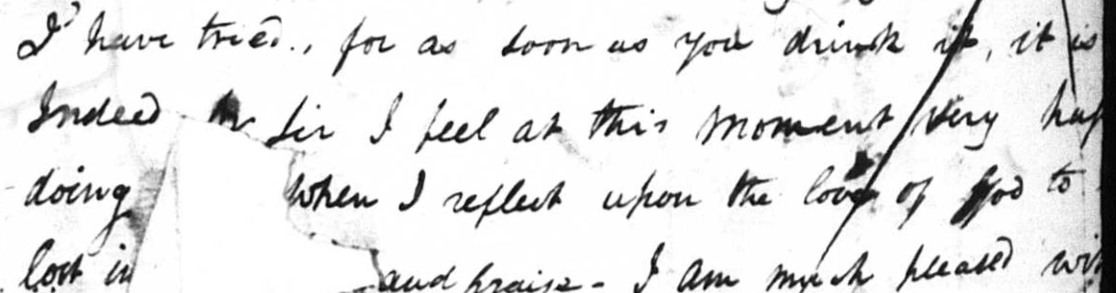 I have tried., for as soon as you drink it, it is
Indeed Dr Sir I feel at this moment very hap
doing when I reflect upon the love of God to
lost in and praise - I am much pleased wit